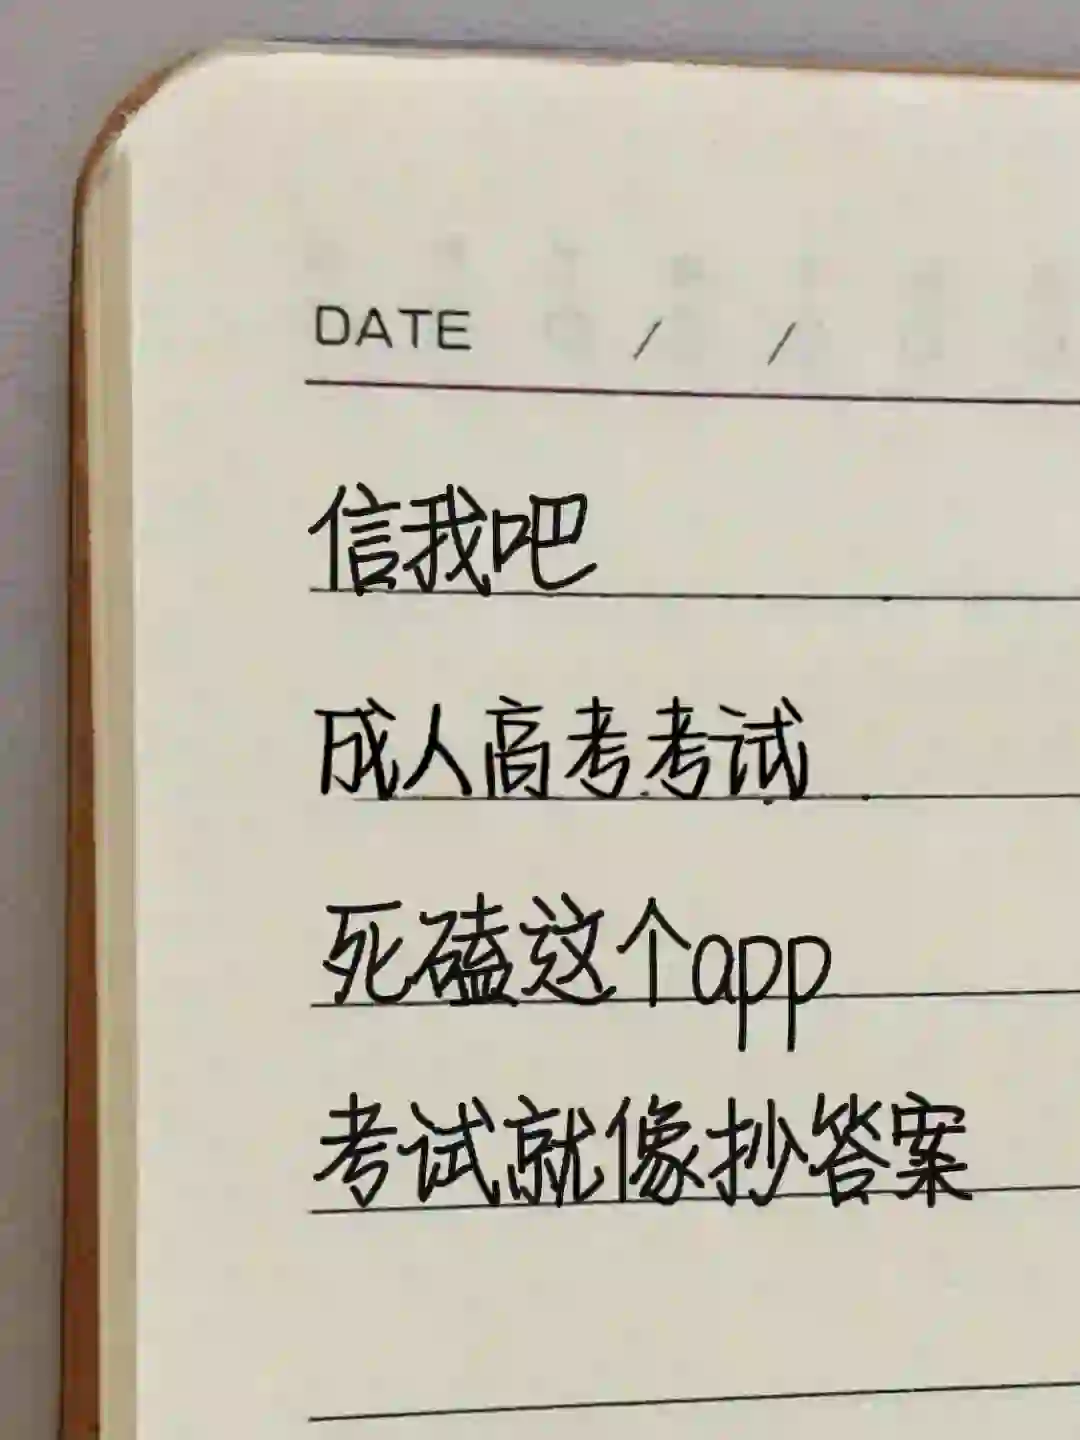 DATE / /
信我吧
成人高考考试
死磕这个app
考试就像抄答案